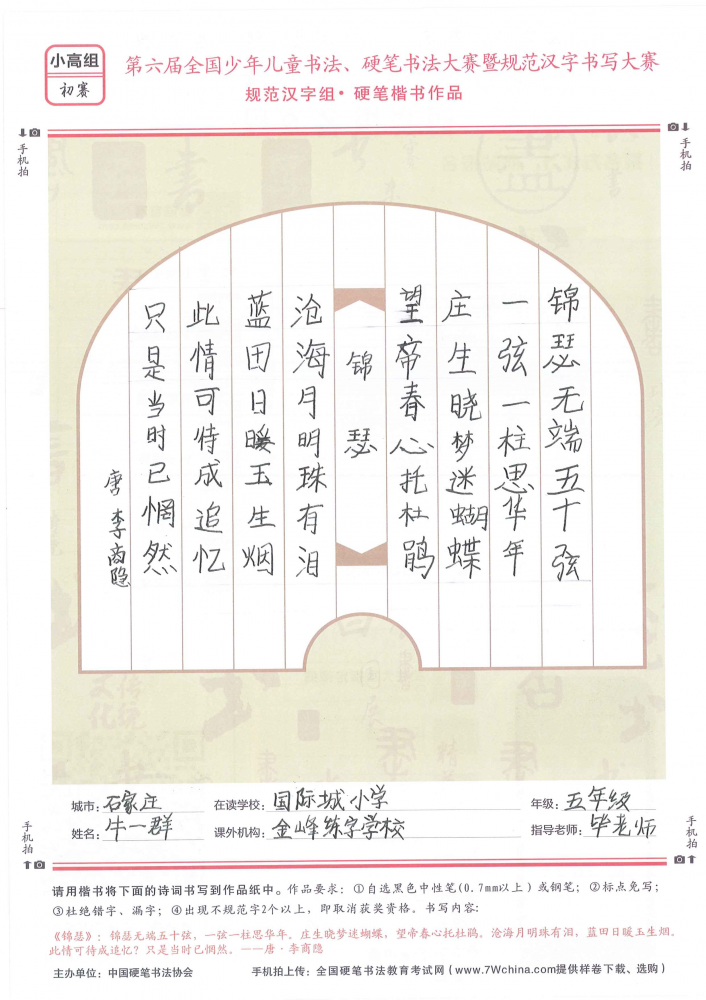 小高组
初赛
第六届全国少年儿童书法、硬笔书法大赛暨规范汉字书写大赛
规范汉字组·硬笔楷书作品
手机拍
手机拍
锦瑟无端五十弦
一弦一柱思华年
庄生晓梦迷蝴蝶
望帝春心托杜鹃
锦瑟
沧海月明珠有泪
蓝田日暖玉生烟
此情可待成追忆
只是当时已惘然
唐 李商隐
城市：石家庄 在读学校：国际城小学 年级：五年级
姓名：牛一群 课外机构：金峰练字学校 指导老师：毕老师
手机拍
手机拍
请用楷书将下面的诗词书写到作品纸中。作品要求：①自选黑色中性笔(0.7mm以上)或钢笔；②标点免写；
③杜绝错字、漏字；④出现不规范字2个以上，即取消获奖资格。书写内容：
《锦瑟》：锦瑟无端五十弦，一弦一柱思华年。庄生晓梦迷蝴蝶，望帝春心托杜鹃。沧海月明珠有泪，蓝田日暖玉生烟。
此情可待成追忆？只是当时已惘然。——唐·李商隐
主办单位：中国硬笔书法协会 手机拍上传：全国硬笔书法教育考试网（www.7Wchina.com提供样卷下载、选购）